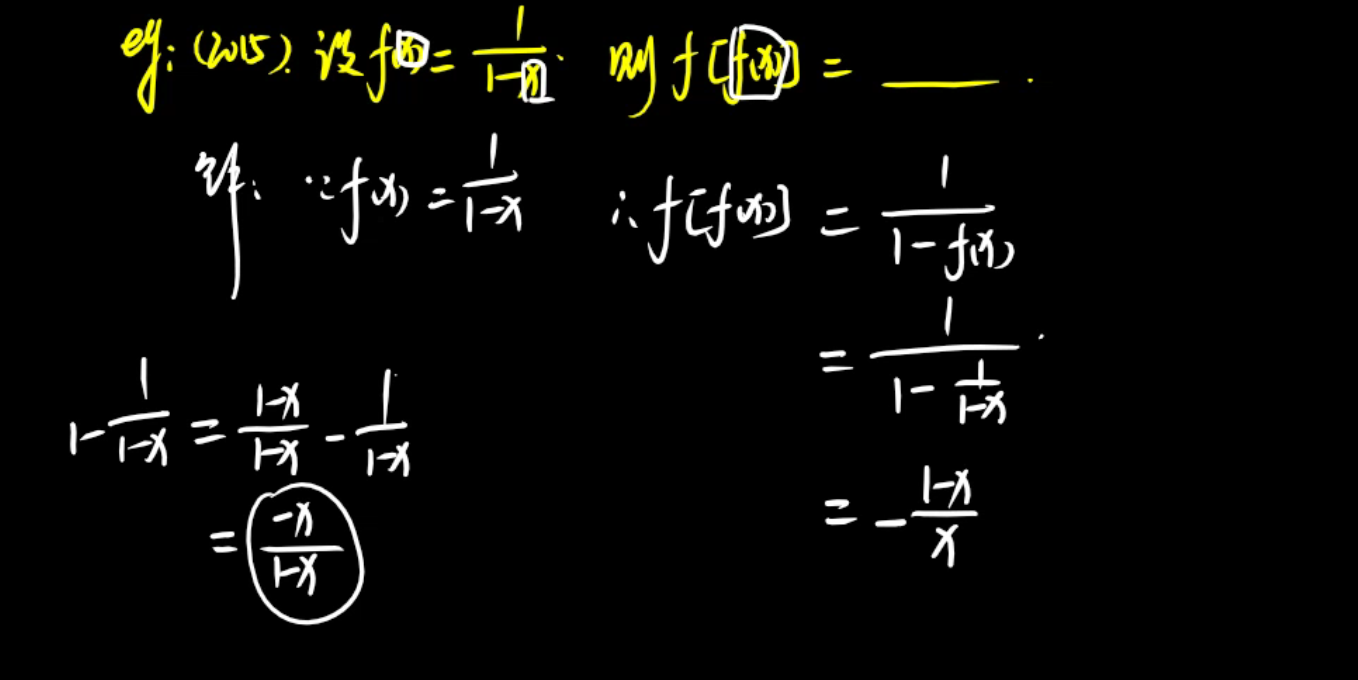 eg: (2015). 设 f(x) = \frac{1}{1-x}. 则 f[f(x)] = ____.
解: ∵ f(x) = \frac{1}{1-x} ∴ f[f(x)] = \frac{1}{1-f(x)}
= \frac{1}{1-\frac{1}{1-x}}.
1-\frac{1}{1-x} = \frac{1-x}{1-x} - \frac{1}{1-x}
= \frac{-x}{1-x}
= -\frac{1-x}{x}